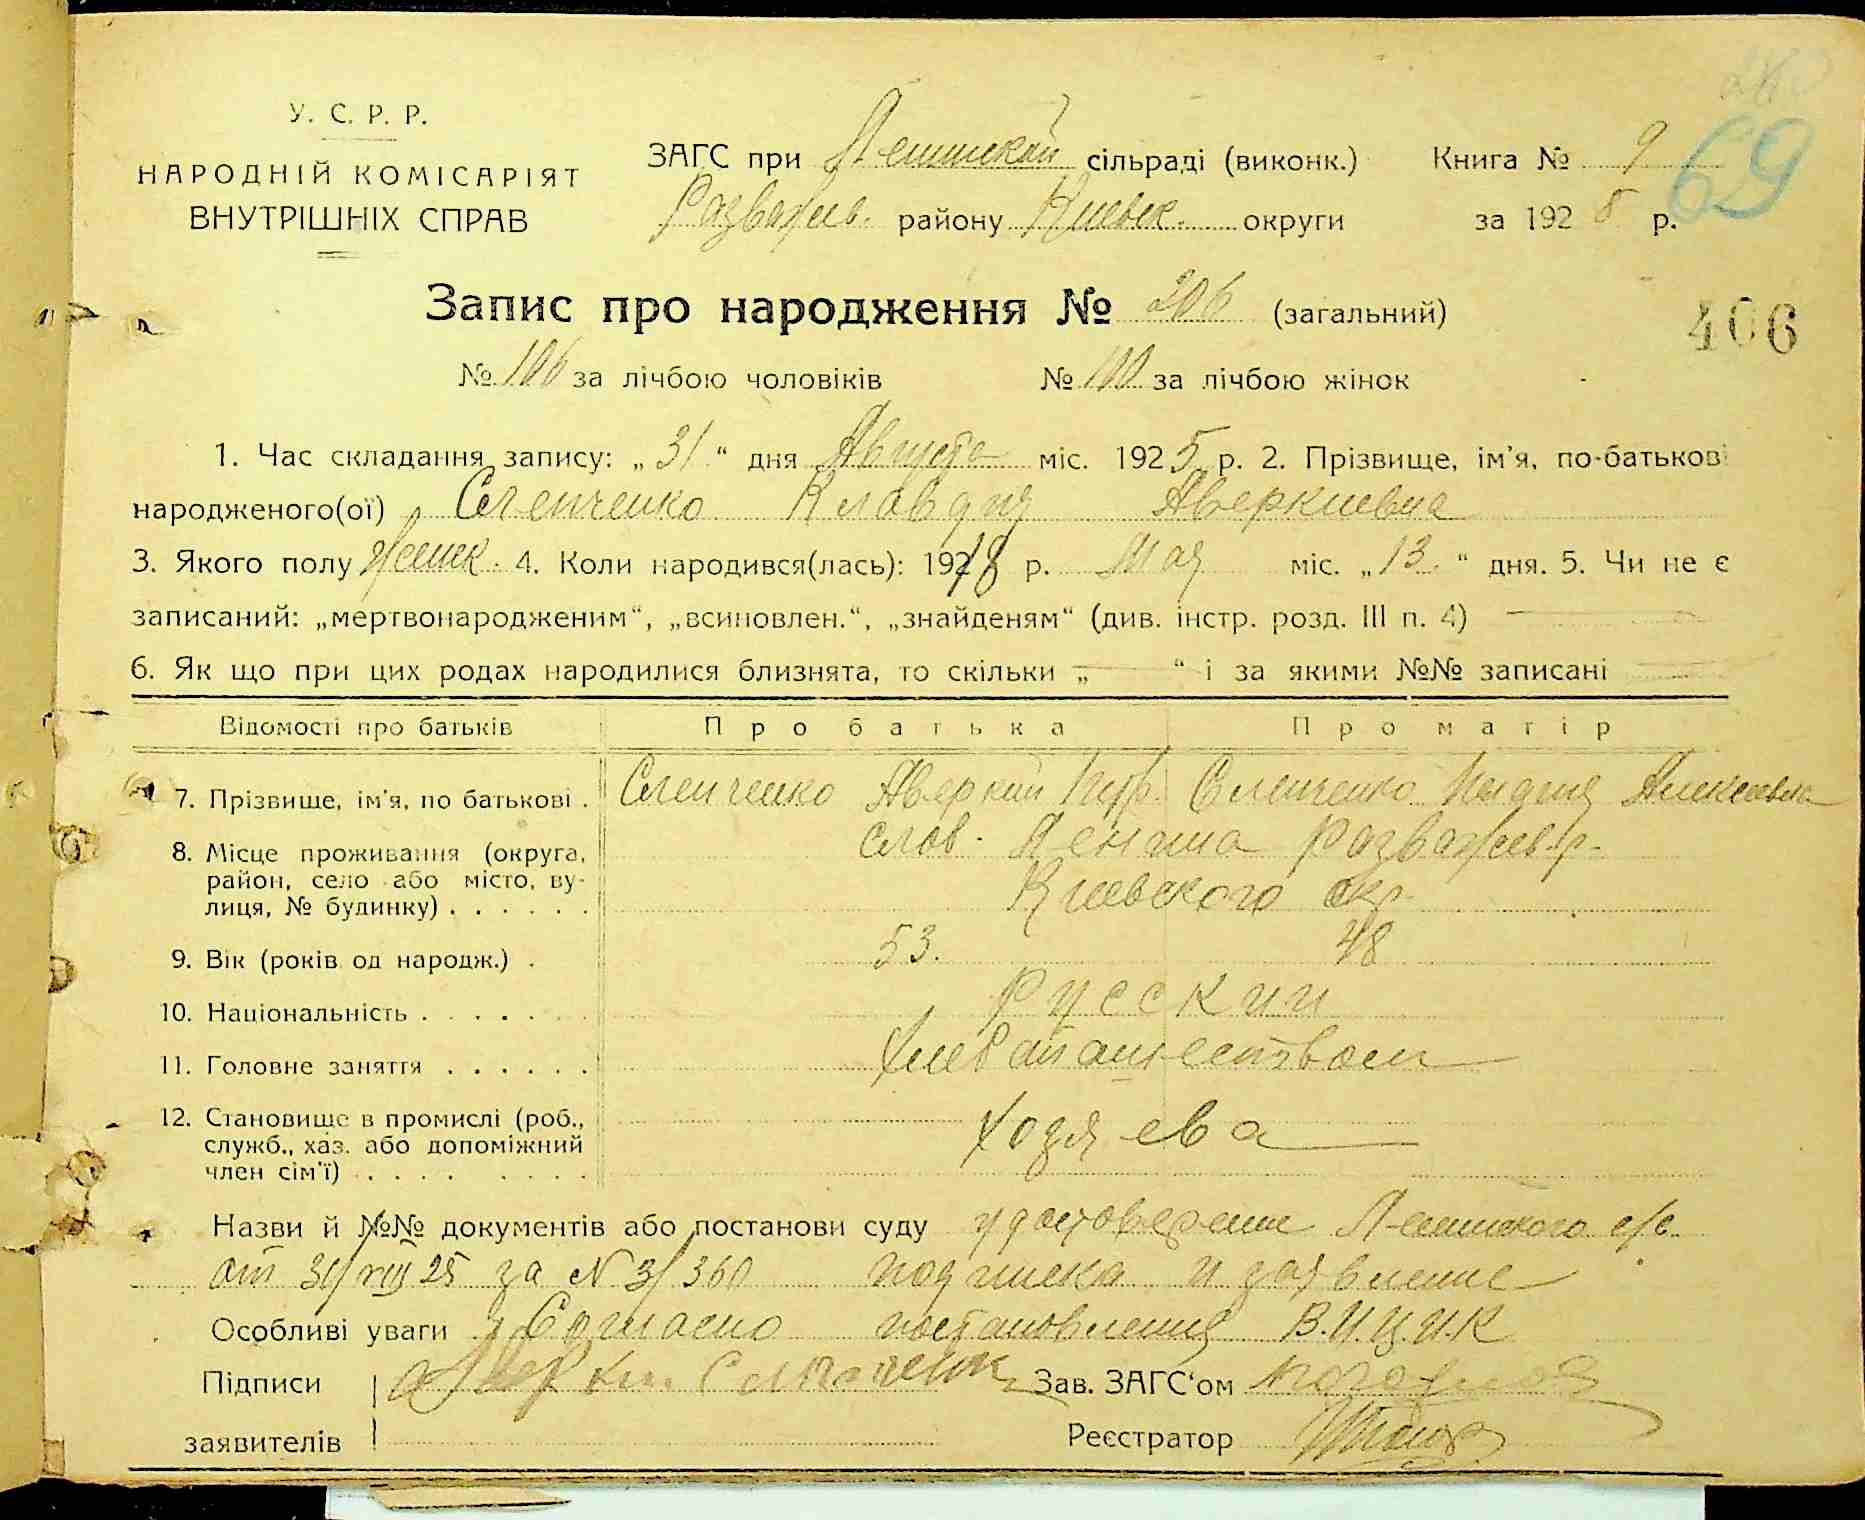 У. С. Р. Р.
НАРОДНІЙ КОМІСАРІЯТ
ВНУТРІШНІХ СПРАВ
ЗАГС при сільраді (виконк.) Книга № 9
69
Разважев. району Киевск. округи за 192 5 р.
Запис про народження № 206 (загальний)
406
№ 106 за лічбою чоловіків № 100 за лічбою жінок
1. Час складання запису: „ 31 “ дня Августа міс. 192 5 р. 2. Прізвище, ім'я, по-батькові
народженого(ої) Слепченко Клавдия Аверкиевна
3. Якого полу женск. 4. Коли народився(лась): 1918 р. Мая міс. „ 13. “ дня. 5. Чи не є
записаний: „мертвонародженим“, „всиновлен.“, „знайденям“ (див. інстр. розд. III п. 4)
6. Як що при цих родах народилися близнята, то скільки „ “ і за якими №№ записані
Відомості про батьків Про батька Про матір
7. Прізвище, ім'я, по батькові . Слепченко Аверкий Слепченко Алексеевна
8. Місце проживання (округа, район, село або місто, вулиця, № будинку) . . . . . . слов. Разважев. р.
Киевского окр.
9. Вік (років од народж.) . 53. 48
10. Національність . . . . . . Русский
11. Головне заняття . . . . . . Хлебопашеством
12. Становище в промислі (роб., служб., хаз. або допоміжний член сім'ї) . . . . . . . . Хозяева
Назви й №№ документів або постанови суду удостоверение с/с.
от 31/VIII 25 за N 3/360 подписка и заявление
Особливі уваги Согласно постановления В.У.Ц.И.К
Підписи Зав. ЗАГС'ом
заявителів Реєстратор